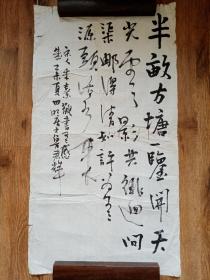 半畝方塘一鑒開天
光雲影共徘徊問
渠那得清如許為有
源頭活水來
宋人朱熹觀書有感
夏四明